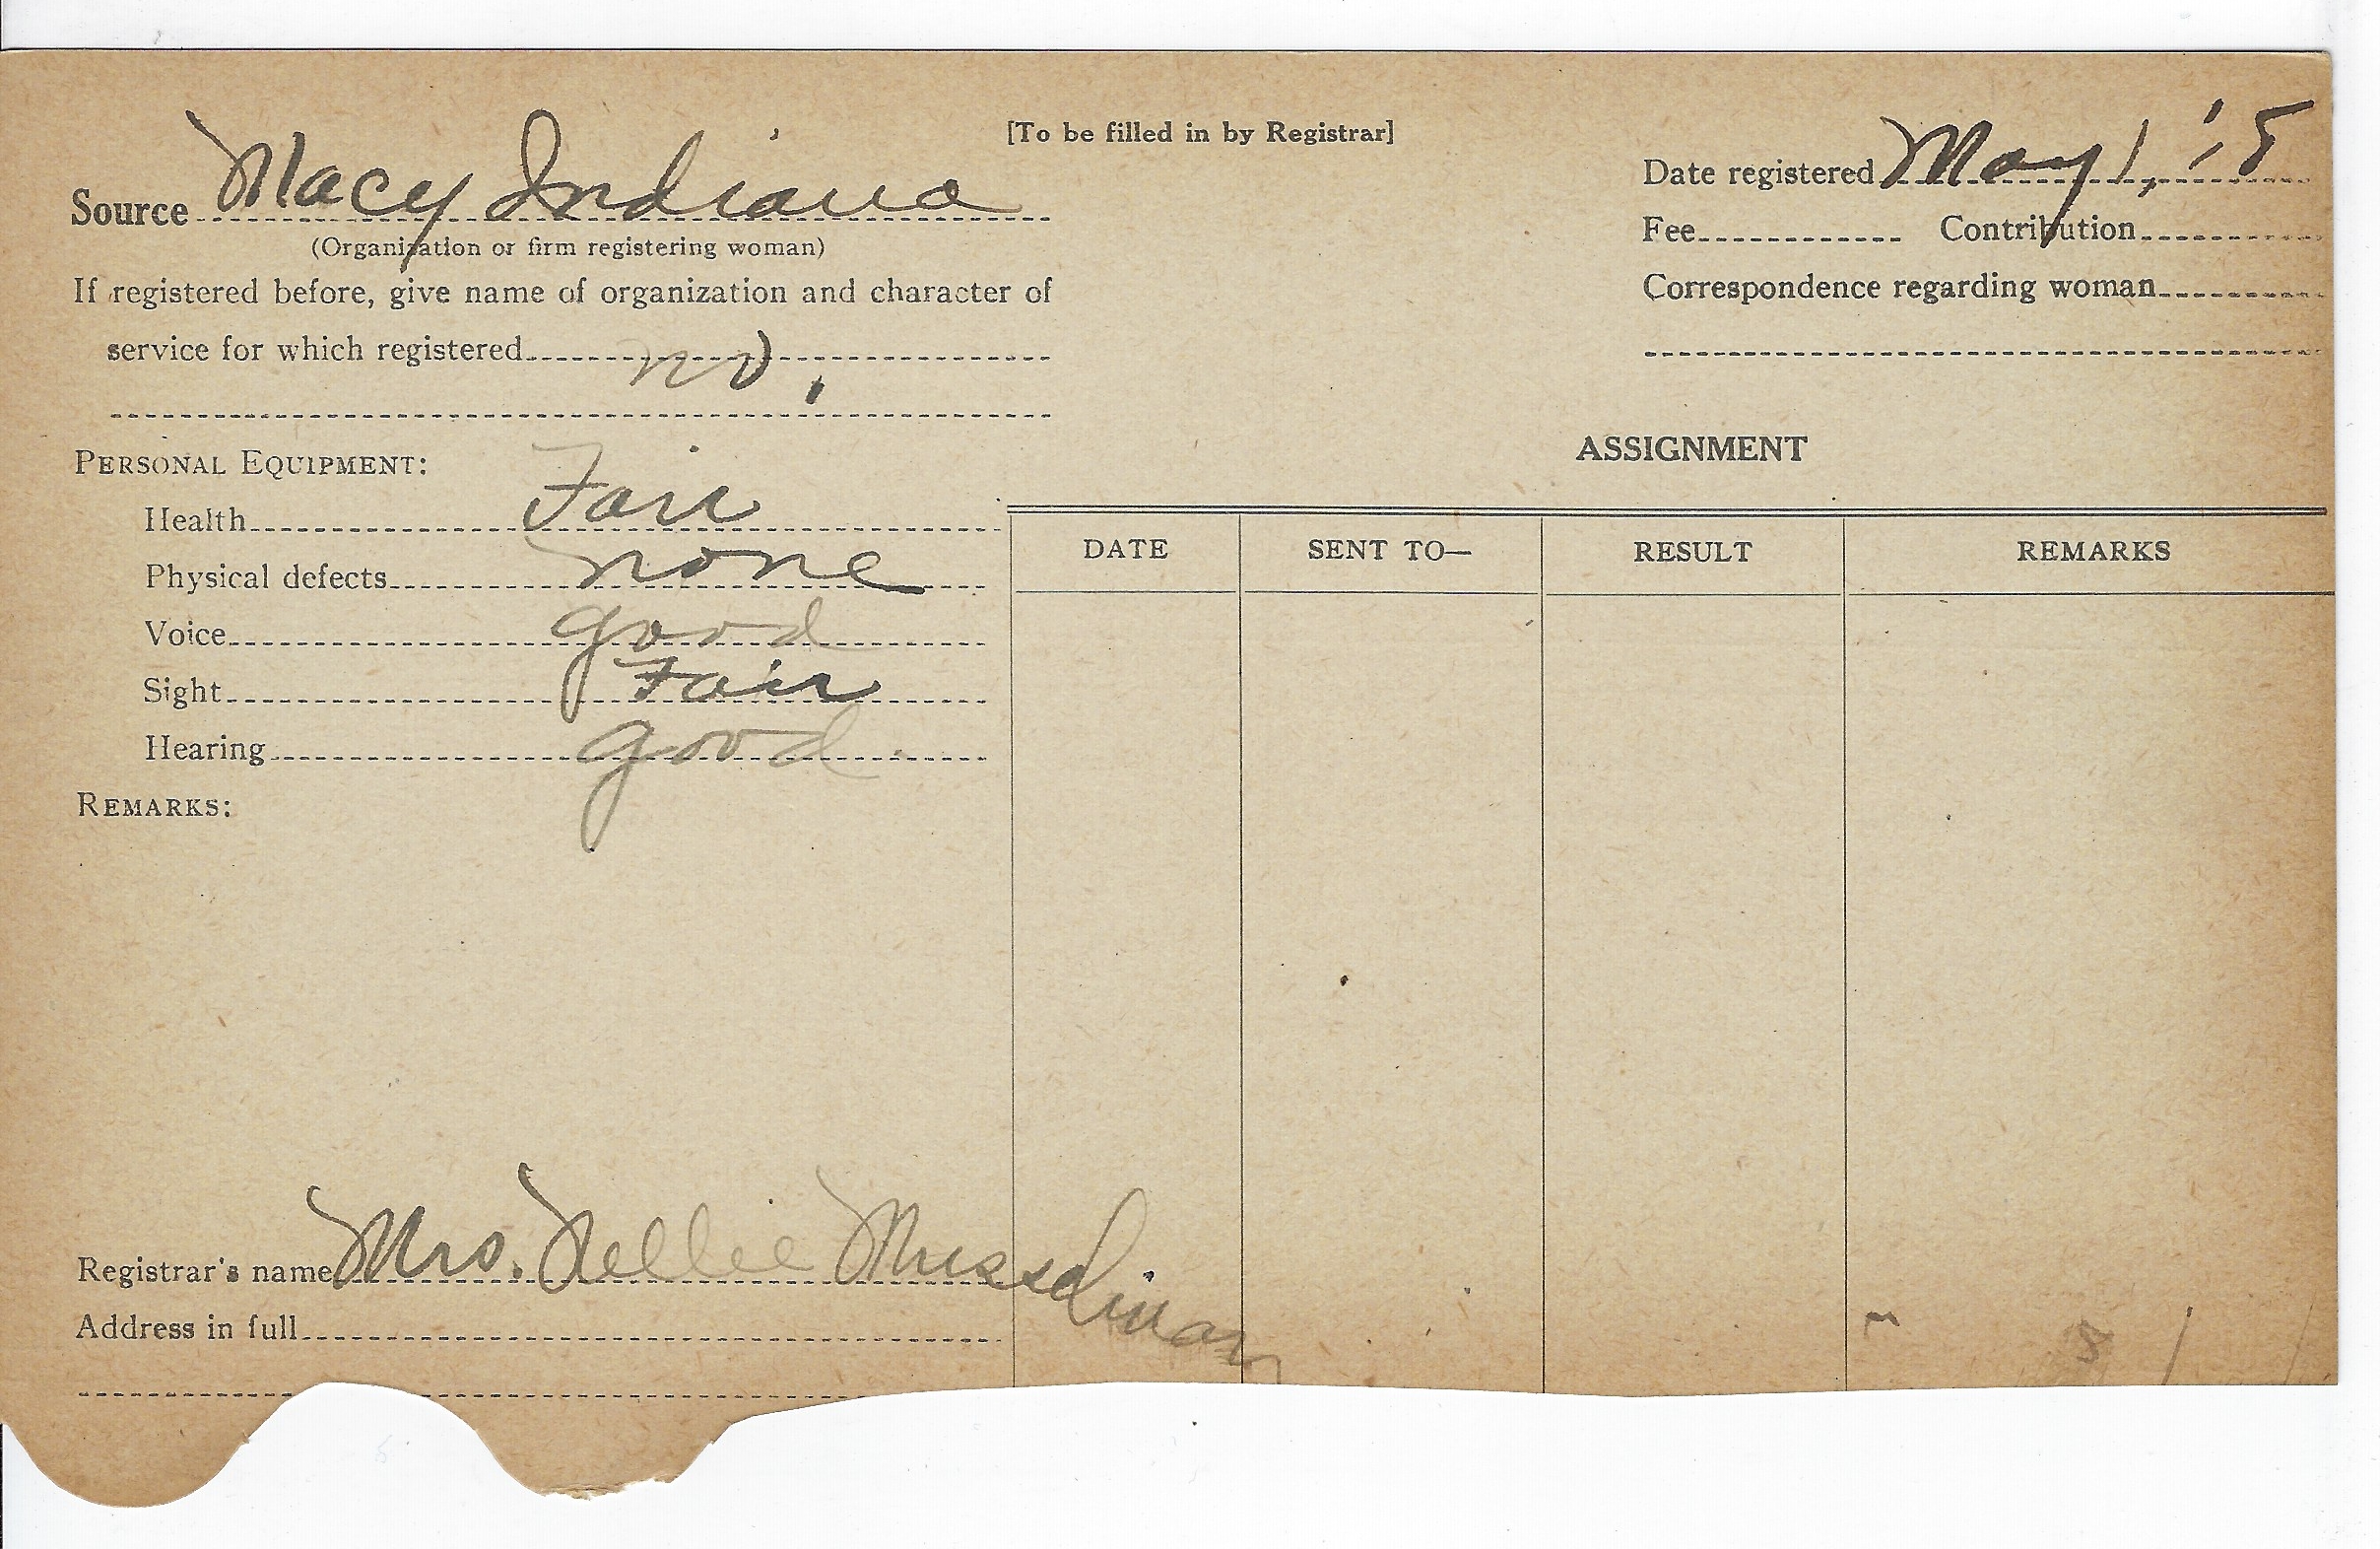 [To be filled in by Registrar]
Source Macy Indiana
(Organization or firm registering woman)
If registered before, give name of organization and character of
service for which registered no.
Date registered May 1, '18
Fee Contribution
Correspondence regarding woman
PERSONAL EQUIPMENT:
Health Fair
Physical defects none
Voice good
Sight Fair
Hearing good
REMARKS:
ASSIGNMENT
DATE SENT TO— RESULT REMARKS
Registrar's name Mrs. Nellie Musselman
Address in full